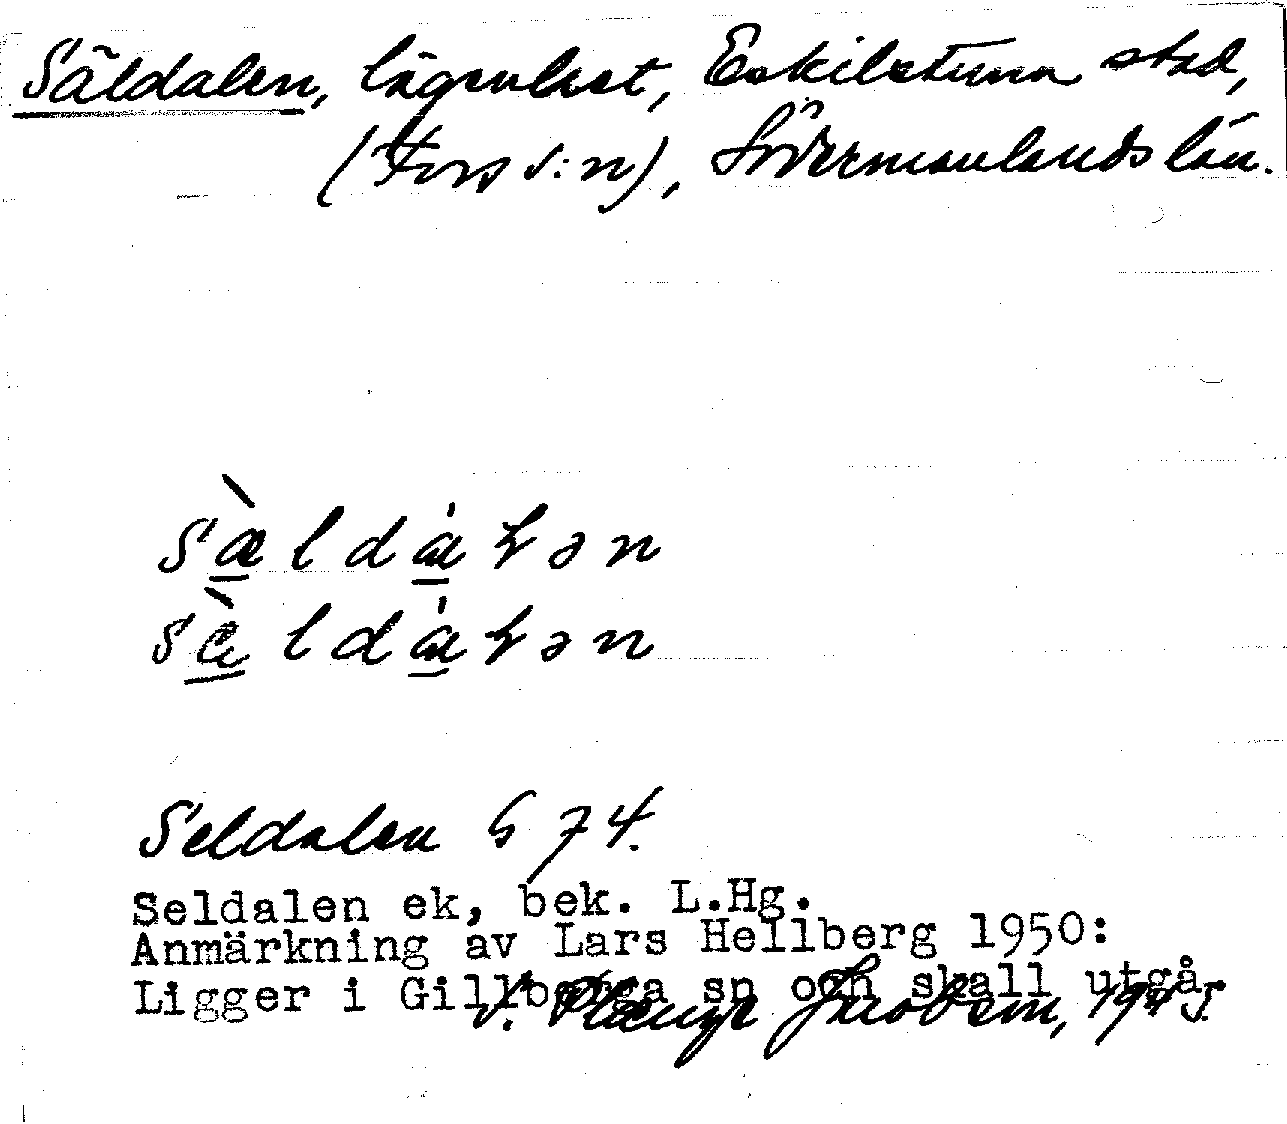 Säldalen, lägenhet, Eskilstuna stad,
(Fors s:n), Södermanlands län.
sæ̀ldàɫən
sèldàɫən
Seldalen G 74.
Seldalen ek, bek. L.Hg.
Anmärkning av Lars Hellberg 1950:
Ligger i Gillberga sn och skall utgå.
Jacobsen, 1945.